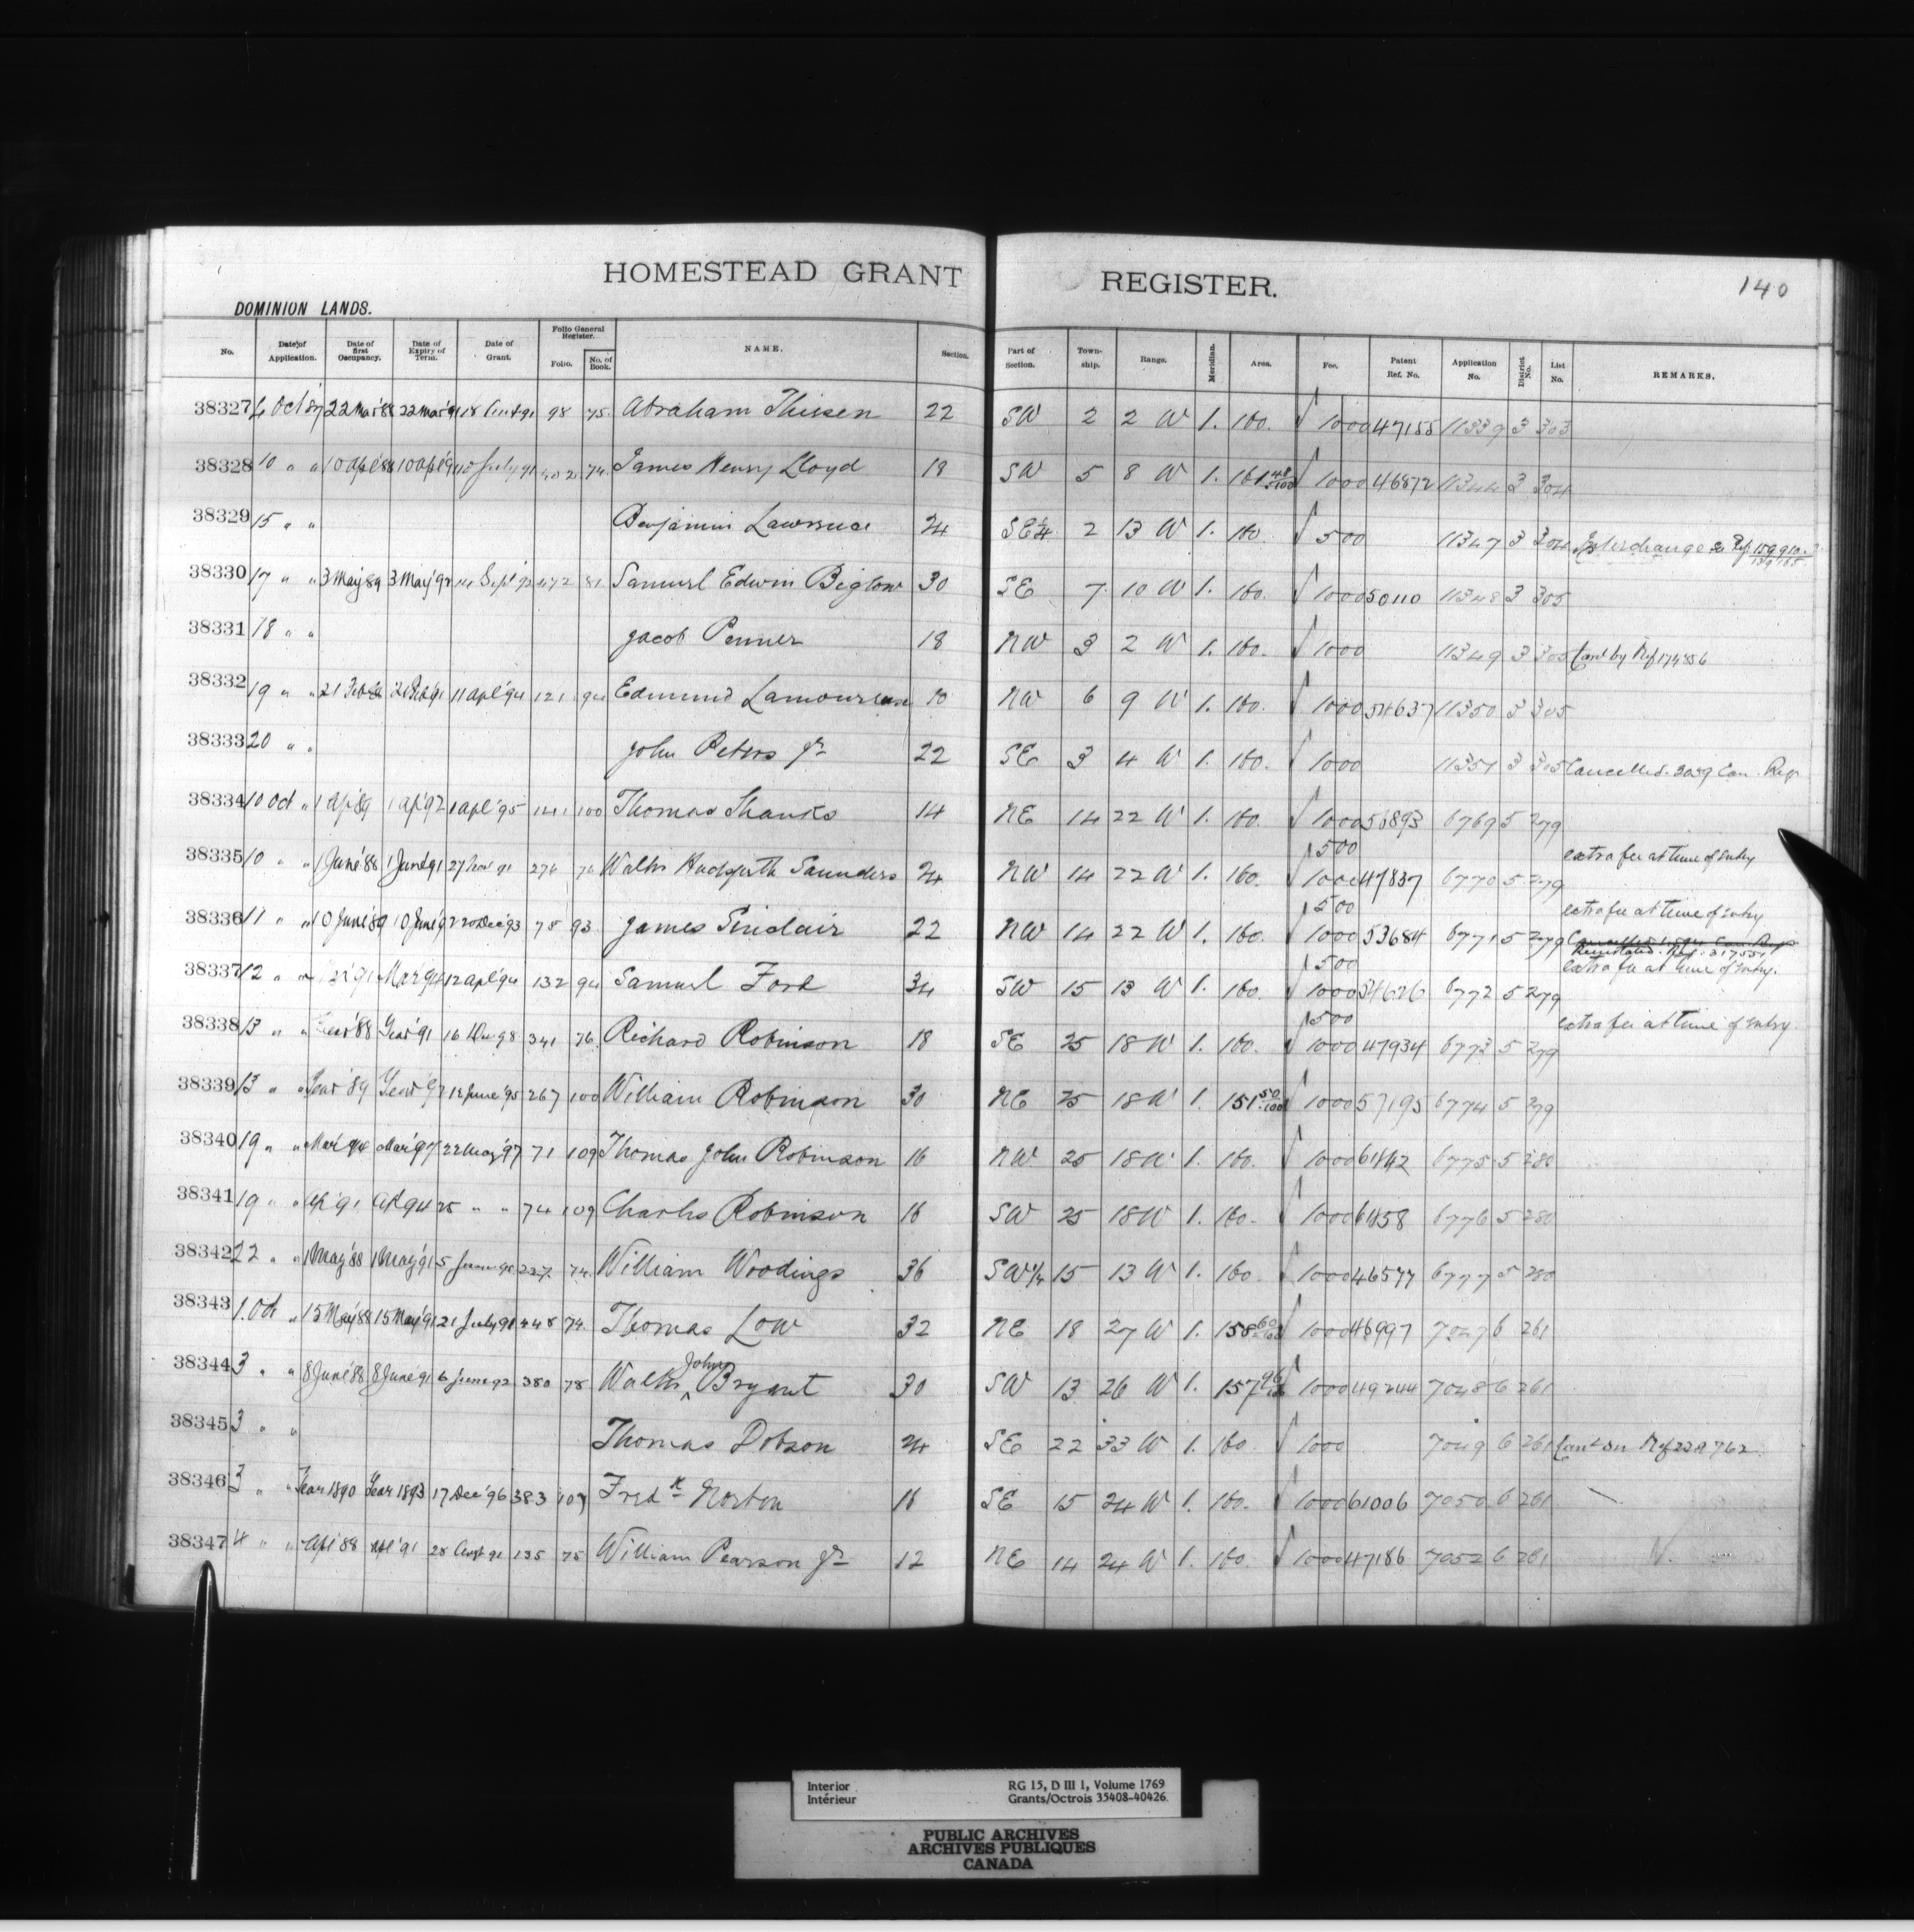 HOMESTEAD GRANT REGISTER.
140
DOMINION LANDS.
No. Date of Application. Date of first Occupancy. Date of Expiry of Term. Date of Grant. Folio General Register. Folio. No. of Book. NAME. Section. Part of Section. Town-ship. Range. Meridian. Area. Fee. Patent Ref. No. Application No. District No. List No. REMARKS.
38327 6 Oct '87 22 Mar '88 22 Mar '91 18 98 75. Abraham Thiesen 22 SW 2 2 W 1. 160. 1000 47155 11339 3 303
38328 10 " " 10 Apl '88 10 Apl '91 10 July 91 402 74. James Henry Lloyd 18 SW 5 8 W 1. 161 48/100 1000 46872 11344 3 304
38329 15 " " Benjamin Lawrence 24 SE 1/4 2 13 W 1. 160. 500 11347 3 304 Interchange Ref. 159910
38330 17 " " 3 May '89 3 May '92 14 Sept '92 472 81 Samuel Edwin Biglow 30 SE 7 10 W 1. 160. 1000 50110 11348 3 305
38331 18 " " Jacob Penner 18 NW 3 2 W 1. 160. 1000 11349 3 305 Canc by Ref 174856
38332 19 " " 21 Feb 21 Feb '91 11 apl '94 121 94 Edmund Lamoureux 10 NW 6 9 W 1. 160. 1000 54637 11350 3 305
38333 20 " " John Peters Jr 22 SE 3 4 W 1. 160. 1000 11351 3 305 Cancelled. 3039 Can. Reg.
38334 10 Oct " 1 Ap '89 1 ap '92 1 apl '95 141 100 Thomas Shanks 14 NE 14 22 W 1. 160. 1000 56893 6769 5 279
38335 10 " " 1 June '88 1 June '91 27 Nov 91 274 76 Walter Hudspeth Saunders 24 NW 14 22 W 1. 160. 500 1000 47837 6770 5 279 extra fee at time of Entry
38336 11 " " 10 June '89 10 June '92 20 Dec '93 75 93 James Sinclair 22 NW 14 22 W 1. 160. 500 1000 53684 6771 5 279 extra fee at time of Entry
Cancelled Can. Reg.
Reinstated. Ref. 317551
38337 12 " " '91 Mar '94 12 apl '94 132 94 Samuel Ford 34 SW 15 13 W 1. 160. 500 1000 54626 6772 5 279 extra fee at time of Entry.
38338 13 " " Year '88 Year '91 16 341 76. Richard Robinson 18 SE 25 18 W 1. 160. 500 1000 47934 6773 5 279 extra fee at time of Entry.
38339 13 " " Year '89 Year '92 12 June '95 267 100 William Robinson 30 NE 25 18 W 1. 151 50/100 1000 57195 6774 5 279
38340 19 " " Mar '94 Mar '97 22 May '97 71 109 Thomas John Robinson 16 NW 25 18 W 1. 160. 1000 6775 5 280
38341 19 " " Ap '91 Ap 94 25 " " 74 109 Charles Robinson 16 SW 25 18 W 1. 160. 1000 6776 5 280
38342 22 " " 1 May '88 1 May '91 5 227 74. William Woodings 36 SW 1/4 15 13 W 1. 160. 1000 46577 6777 5 280
38343 1. Oct " 15 May '88 15 May '91 21 July 91 448 74. Thomas Low 32 NE 18 27 W 1. 158 60/100 1000 46997 7047 6 261
38344 3 " " 8 June '88 8 June '91 6 June 92 380 78 Walter John Bryant 30 SW 13 26 W 1. 157 96/100 1000 49244 7048 6 261
38345 3 " " Thomas Dobson 24 SE 22 33 W 1. 160 1000 7049 6 261 Ref 228762.
38346 3 " " Year 1890 Year 1893 17 Dec '96 383 107 Fredk Norton 16 SE 15 24 W 1. 160. 1000 61006 7050 6 261
38347 4 " " Apl '88 Apl '91 28 Augt 91 135 75 William Pearson Jr 12 NE 14 24 W 1. 160. 1000 47186 7052 6 261
Interior
Intérieur
RG 15, D III 1, Volume 1769
Grants/Octrois 35408-40426
PUBLIC ARCHIVES
ARCHIVES PUBLIQUES
CANADA